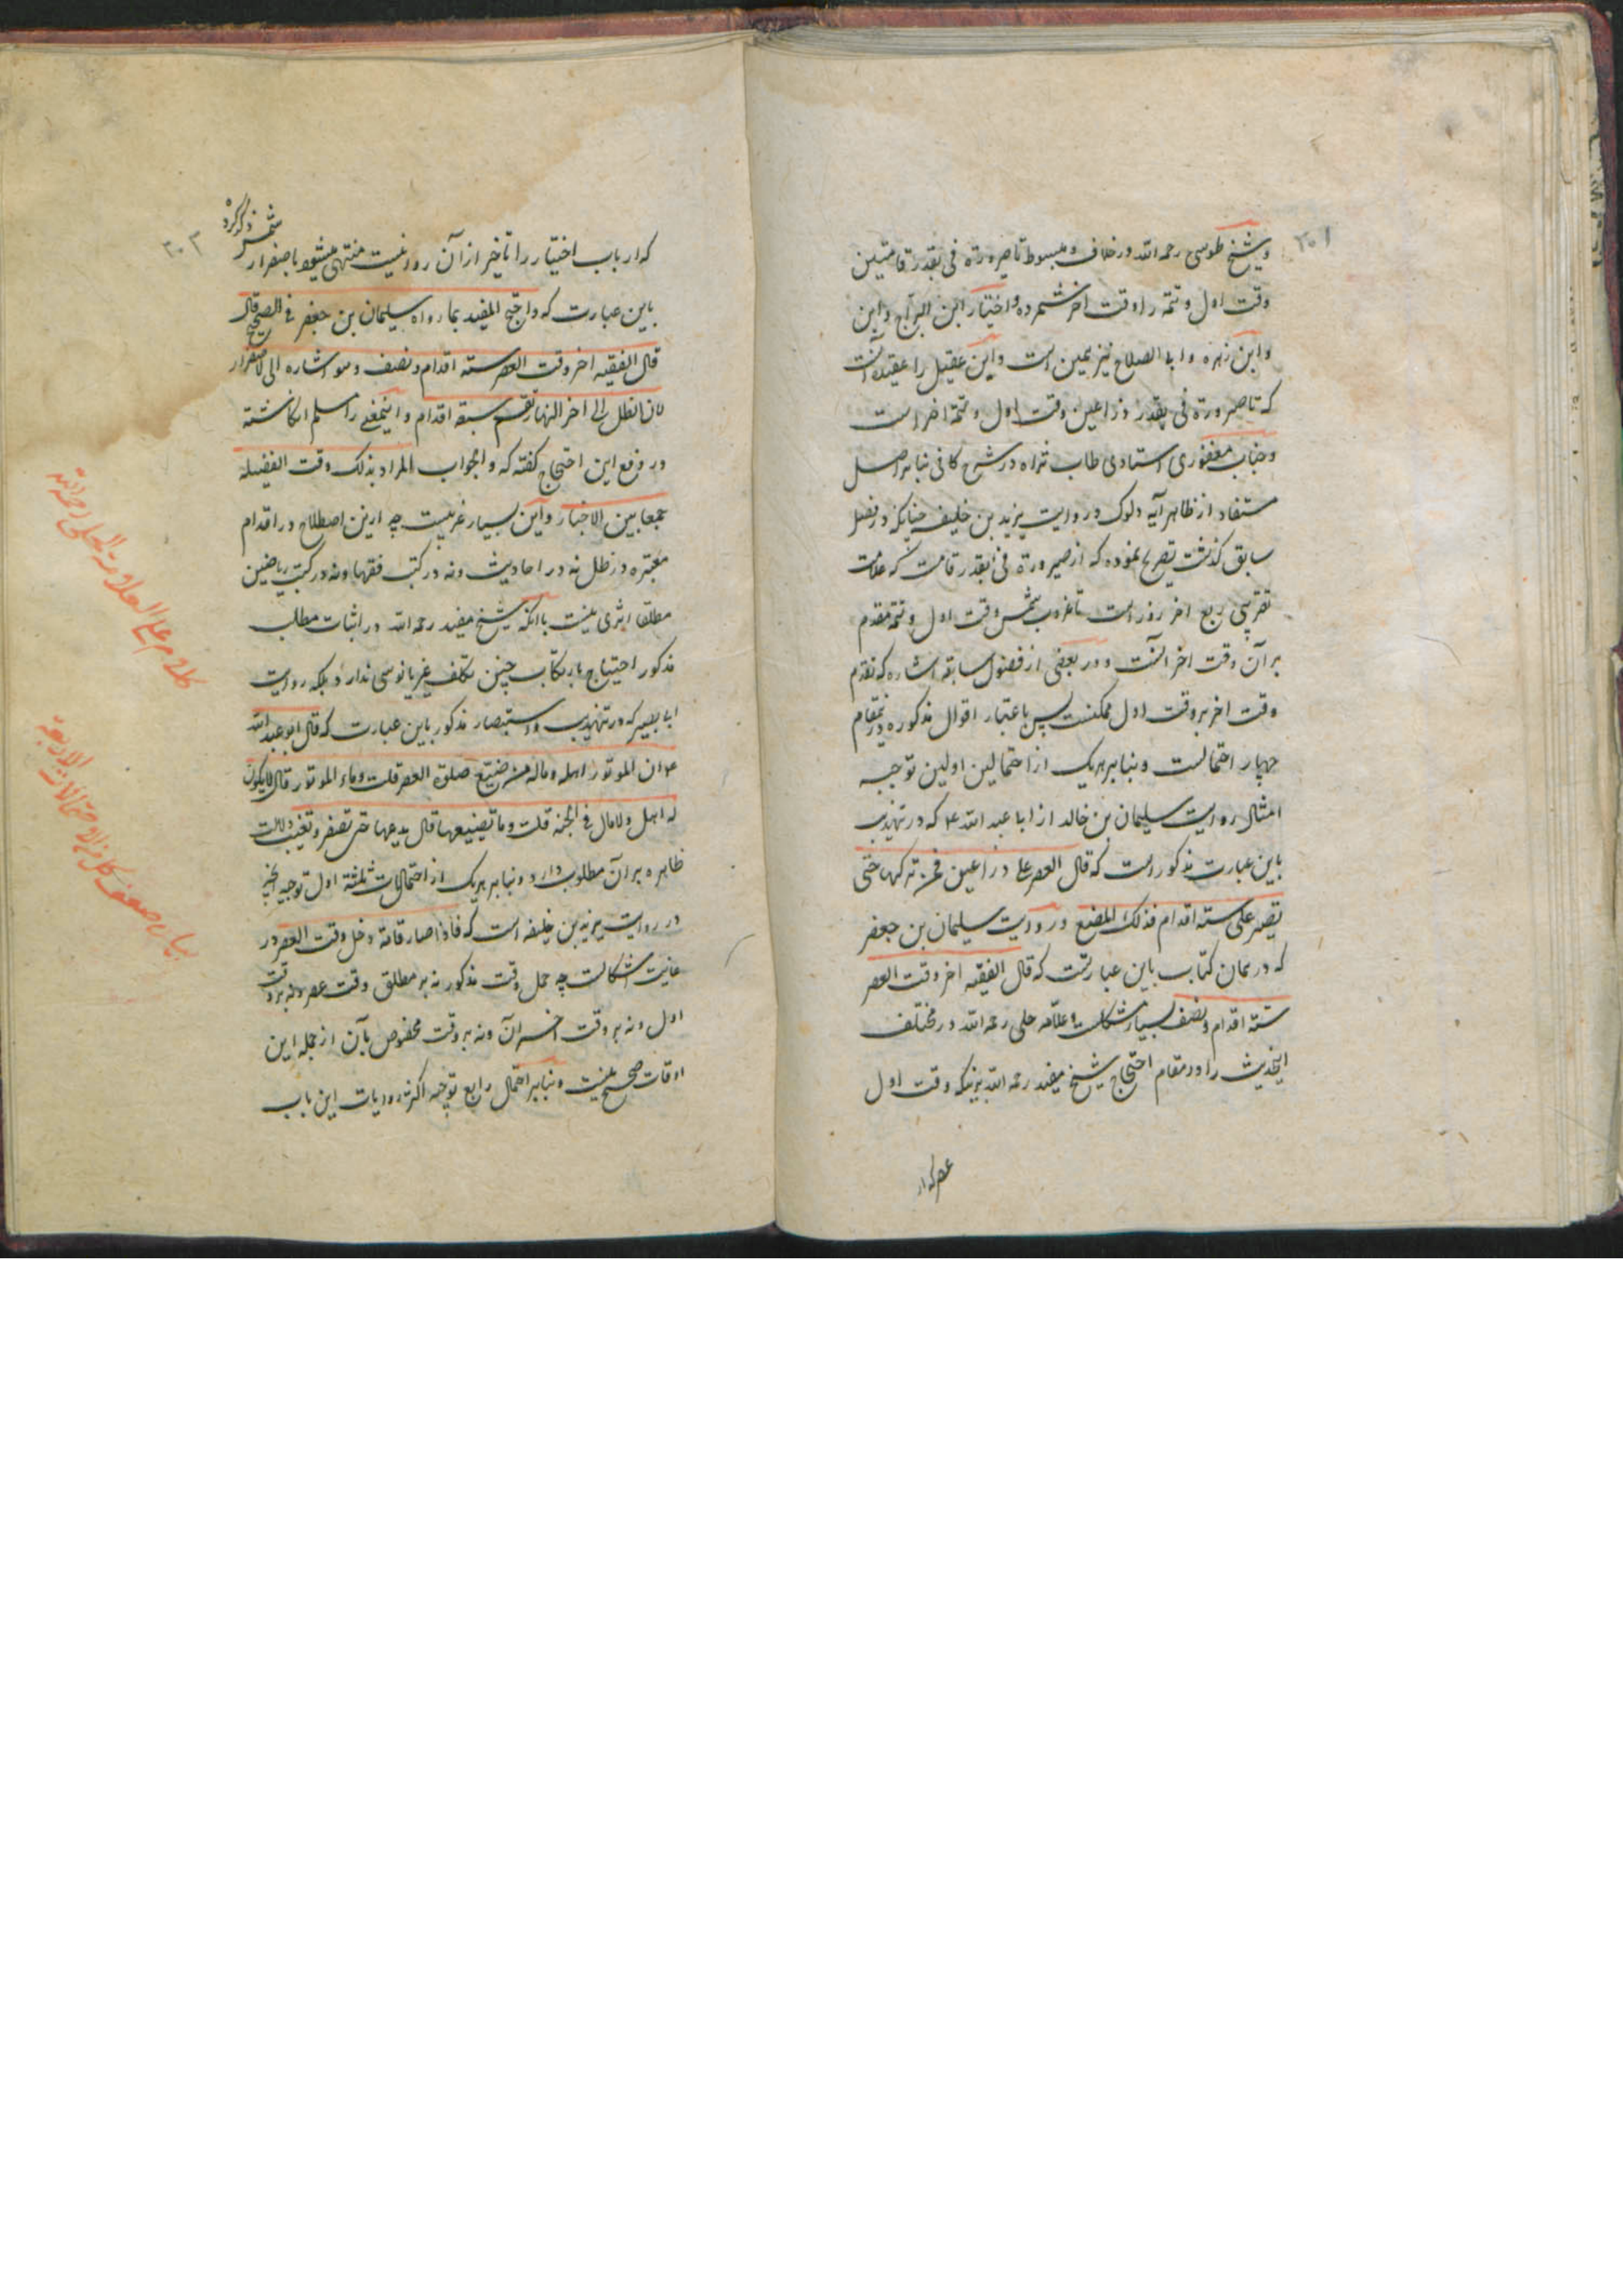 ۲۰۱
وشیخ طوسی رحمه الله در خلاف ومبسوط تا صیرورة فی بقدر قامتین
وقت اول وتتمه را وقت اخر شمرده واختیار ابن البراج وابن
وابن زهره وابا الصلاح نیز همین است وابن عقیل را عقیده آنست
که تا صیرورة فی بقدر ذراعین وقت اول وتتمه اخر است
وجناب مغفوری استادی طاب ثراه در شرح کافی بنابر اصل
مستفاد از ظاهر آیه دلوک وروایت یزید بن خلیفه چنانکه در فصل
سابق گذشت تصریح نموده که از صیرورة فی بقدر قامت که علامت
تقریبی ربع اخر روز است تا غروب شمس وقت اول وتتمه مقدم
بر آن وقت اخر آنست ودر بعضی از فصول سابقه اشاره که تقدم
وقت اخر بر وقت اول ممکنست پس باعتبار اقوال مذکوره درینمقام
چهار احتمالست وبنابر هریک از احتمالین اولین توجیه
امثال روایت سلیمان بن خالد از ابا عبد الله ع که در تهذیب
باین عبارت مذکور است که قال العصر علی ذراعین فمن ترکها حتی
یصیر علی ستة اقدام فذلک المضیع وروایت سلیمان بن جعفر
که در همان کتاب باین عبارتست که قال الفقیه اخر وقت العصر
ستة اقدام ونصف بسیار مشکلست وعلامه حلی رحمه الله در مختلف
اینحدیث را در مقام احتجاج شیخ مفید رحمه الله برینکه وقت اول
عصر که ار
۲۰۲
که ارباب اختیار را تاخیر از آن روا نیست منتهی میشود باصفرار شمس ذکر کرده
باین عبارت که واحتج المفید بما رواه سلیمان بن جعفر فی الصحیح قال
قال الفقیه اخر وقت العصر ستة اقدام ونصف وهو اشاره الی الاصفرار
لان الظل الی اخر النهار یقسم سبعة اقدام واینمعنی را مسلم انگاشته
ودر دفع این احتجاج گفته که والجواب المراد بذلک وقت الفضیله
جمعا بین الاخبار واین بسیار غریبست چه ازین اصطلاح در اقدام
معتبره در ظل نه در احادیث ونه در کتب فقها ونه در کتب ریاضیین
مطلقا اثری نیست با آنکه شیخ مفید رحمه الله در اثبات مطلب
مذکور احتیاج بارتکاب چنین تکلف غیر مانوسی ندارد بلکه روایت
ابا بصیر که در تهذیب واستبصار مذکور باین عبارت که قال ابو عبد الله
ع ان الموتور اهله وماله من ضیع صلوة العصر قلت وما الموتور قال لایکون
له اهل ولا مال فی الجنه قلت وما تضییعها قال یدعها حتی تصفر وتغیب دلالت
ظاهره بر آن مطلوب دارد وبنابر هریک از احتمالات ثلثة اول توجیه آنچه
در روایت یزید بن خلیفه است که فاذا صار قامة دخل وقت العصر در
غایت اشکالست چه حمل وقت مذکور نه بر مطلق وقت عصر ونه بر وقت
اول ونه بر وقت اخر آن ونه بر وقت مخصوص بآن از جمله این
اوقات صحیح نیست وبنابر احتمال رابع توجیه اکثر روایات این باب
کلام علی العلامة الحلی رحمه الله
بیان ضعف کل من الاحتمالات الاربعة